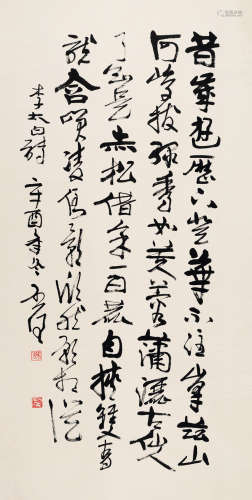 昔歲遊歷下登華不注峯茲山
何峻拔綠秀如芙蓉蕭灑古仙人
了知是赤松借余一白鹿自挾雙青
龍含笑凌倒景欣然願相從
李太白詩 辛酉年冬